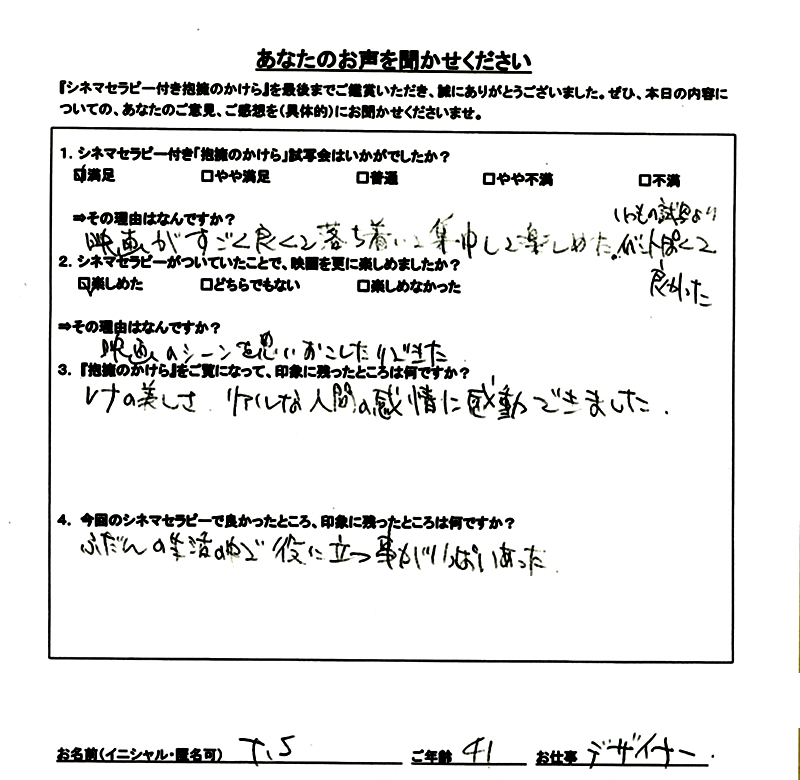 あなたのお声を聞かせください
『シネマセラピー付き抱擁のかけら』を最後までご鑑賞いただき、誠にありがとうございました。ぜひ、本日の内容に
ついての、あなたのご意見、ご感想を(具体的)にお聞かせくださいませ。
1. シネマセラピー付き「抱擁のかけら」試写会はいかがでしたか?
☑満足 □やや満足 □普通 □やや不満 □不満
⇒その理由はなんですか?
映画がすごく良くて落ち着いて集中して楽しめた。
いつもの試写より
イベントぽくて
良かった
2. シネマセラピーがついていたことで、映画を更に楽しめましたか?
☑楽しめた □どちらでもない □楽しめなかった
⇒その理由はなんですか?
映画のシーンを思いおこしたりできた
3. 『抱擁のかけら』をご覧になって、印象に残ったところは何ですか?
レナの美しさ. リアルな人間の感情に感動できました.
4. 今回のシネマセラピーで良かったところ、印象に残ったところは何ですか?
ふだんの生活の中で役に立つ事がいっぱいあった
お名前(イニシャル・匿名可) T.S ご年齢 41 お仕事 デザイナー.